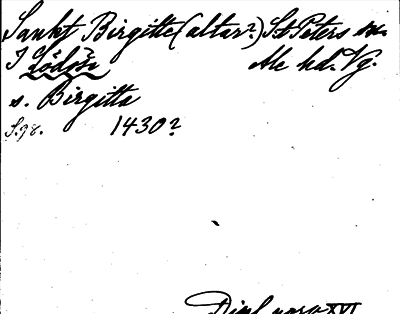 Sankt Birgitte (altar?) St. Peters sn.
I Lödöse Ale hd. Vg.
s. Birgitta
S.98. 1430?
Dipl. norv XVI